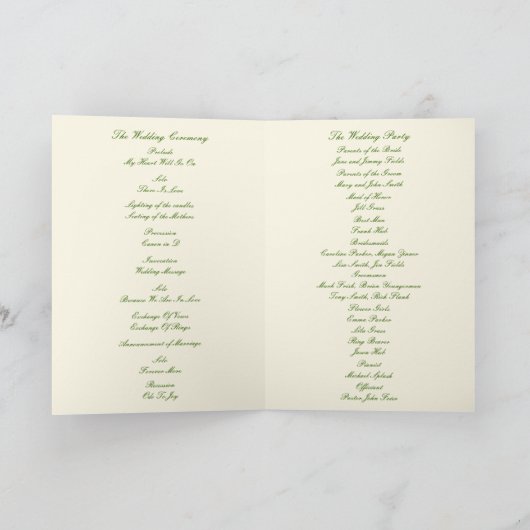 The Wedding Ceremony
Prelude
My Heart Will Go On
Solo
There Is Love
Lighting of the candles
Seating of the Mothers
Precession
Canon in D
Invocation
Wedding Message
Solo
Because We Are In Love
Exchange Of Vows
Exchange Of Rings
Announcement of Marriage
Solo
Forever More
Recession
Ode To Joy
The Wedding Party
Parents of the Bride
Jane and Jimmy Fields
Parents of the Groom
Mary and John Smith
Maid of Honor
Jill Grass
Best Man
Frank Hub
Bridesmaids
Caroline Parker, Megan
Lisa Smith, Jen Fields
Groomsmen
Mark Frish, Brian Youngerman
Tony Smith, Rick Plank
Flower Girls
Emma Parker
Lila Grass
Ring Bearer
Jason Hub
Pianist
Michael Splash
Officiant
Pastor John